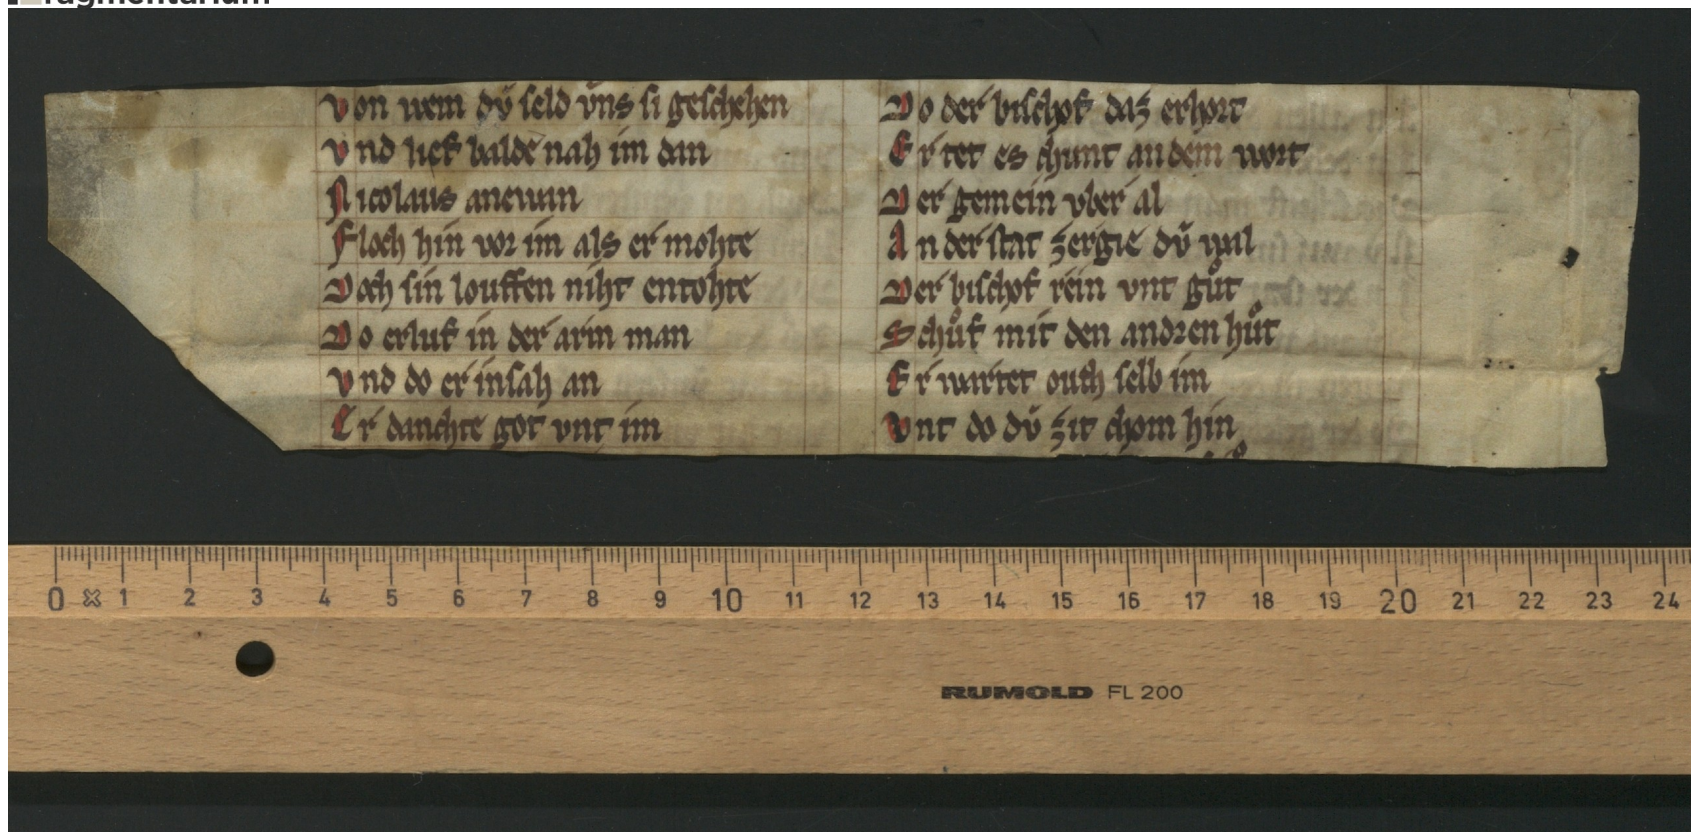 ragmentarium
Von wem dv̈ seld v̈ns si geschehen
Vnd lief balde nah im dan
Nicolaus anewin
Floch hin vor im als er mohte
Doch sin louffen niht entohte
Do erluf in der arm man
Vnd do er in sah an
Er danchte got vnt im
Do der bischof daz erhort
Er tet es chunt an dem wort
Der gemein vber al
An der stat zergie dv̈ wal
Der bischof rein vnt gůt
Schůf mit den andren hůt
Er wartet ouch selb im
Vnt do dv̈ zit chom hin
0 1 2 3 4 5 6 7 8 9 10 11 12 13 14 15 16 17 18 19 20 21 22 23 24
RUMOLD FL 200